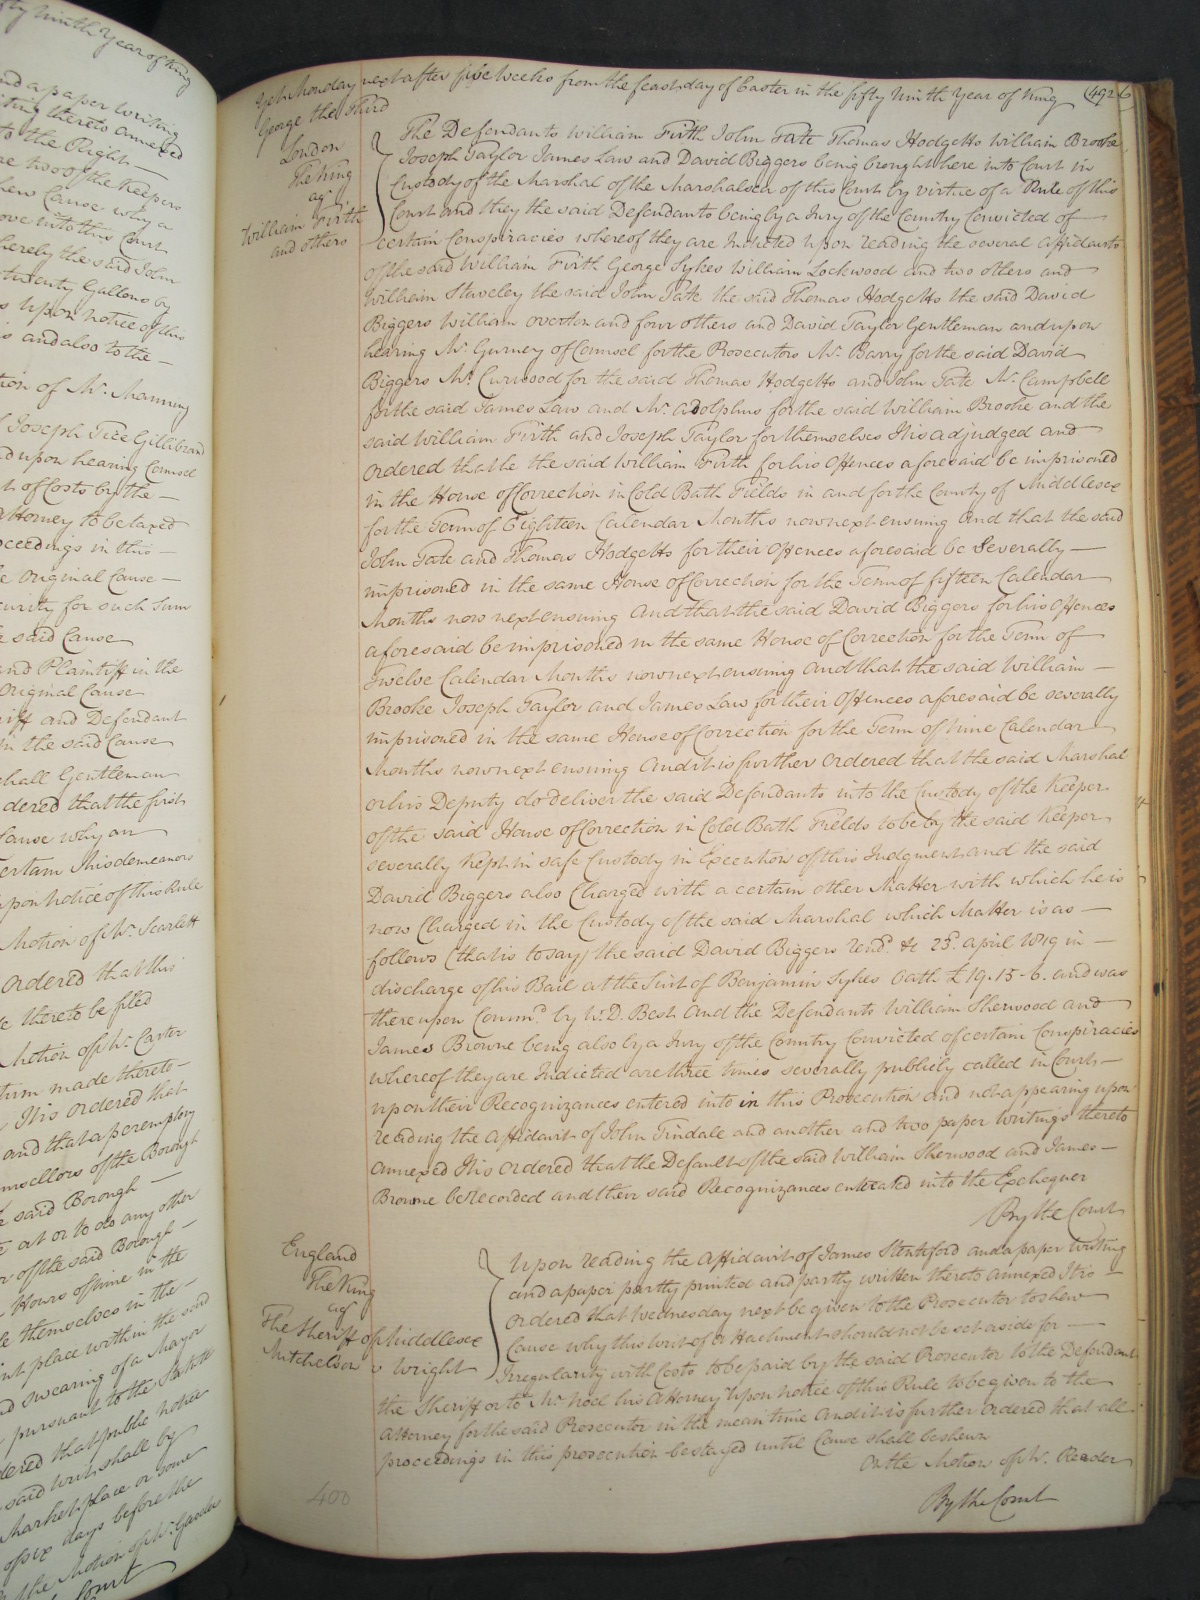 fty Ninth Year of King
and a paper writing
iting thereto annexed
to the Right
re two of the Keepers
hew Cause why a
ove into this Court
hereby the said John
twenty Gallons of
s upon notice of this
is and also to the
tion of Mr. Manning
Joseph Tice Gillibrand
d upon hearing Counsel
t of Costs by the
Attorney to be taxed
oceedings in this
e Original Cause
curity for such Sum
e said Cause
and Plaintiff in the
Original Cause
riff and Defendant
in the said Cause
shall Gentleman
dered that the first
Cause why an
ertain Misdemeanors
upon Notice of this Rule
Motion of Mr. Scarlett
Ordered that this
e thereto be filed
Motion of Mr. Carter
turn made thereto
It is Ordered that
and that a peremptory
unsellors of the Borough
e said Borough
at or to do any other
r of the said Borough
Hours of nine in the
le themselves in the
nt place within the said
nd swearing of a Mayor
pursuant to the Statute
dered that public notice
said writ shall by
Market place or some
of six days before the
the Motion of Mr.
Court
Yet Monday next after five Weeks from the feast day of Easter in the fifty Ninth Year of King
George the third
492
London
The King
agt
William Firth
and others
The Defendants William Firth John Tate Thomas Hodgetts William Brooke
Joseph Taylor James Law and David Biggers being brought here into Court in
Custody of the Marshal of the Marshalsea of this Court by virtue of a Rule of this
Court and they the said Defendants being by a Jury of the Country Convicted of
certain Conspiracies whereof they are Indicted upon reading the several affidavits
of the said William Firth George Sykes William Lockwood and two others and
William Staveley the said John Tate the said Thomas Hodgetts the said David
Biggers William Overton and four others and David Taylor Gentleman and upon
hearing Mr. Gurney of Counsel for the Prosecutors Mr. Barry for the said David
Biggers Mr. Curwood for the said Thomas Hodgetts and John Tate Mr. Campbell
for the said James Law and Mr. Adolphus for the said William Brooke and the
said William Firth and Joseph Taylor for themselves It is adjudged and
Ordered that he the said William Firth for his Offences aforesaid be imprisoned
in the House of Correction in Cold Bath Fields in and for the County of Middlesex
for the Term of Eighteen Calendar Months now next ensuing And that the said
John Tate and Thomas Hodgetts for their Offences aforesaid be Severally
imprisoned in the same House of Correction for the Term of fifteen Calendar
Months now next ensuing And that the said David Biggers for his Offences
aforesaid be imprisoned in the same House of Correction for the Term of
Twelve Calendar Months now next ensuing And that the said William
Brooke Joseph Taylor and James Law for their Offences aforesaid be severally
imprisoned in the same House of Correction for the Term of nine Calendar
Months now next ensuing And it is further Ordered that the said Marshal
or his Deputy do deliver the said Defendants into the Custody of the Keeper
of the said House of Correction in Cold Bath Fields to be by the said Keeper
severally kept in safe Custody in Execution of this Judgment and the said
David Biggers also Charged with a certain other Matter with which he is
now Charged in the Custody of the said Marshal which Matter is as
follows (that is to say) the said David Biggers rend. &c 23d. April 1819 in
discharge of his Bail at the Suit of Benjamin Sykes Oath £19.15-6. and was
thereupon Comm.d by W. D. Best And the Defendants William Sherwood and
James Browne being also by a Jury of the Country Convicted of certain Conspiracies
whereof they are Indicted are three times severally publicly called in Court
upon their Recognizances entered into in this Prosecution and not appearing upon
reading the Affidavit of John Tindale and another and two paper Writings thereto
annexed It is Ordered that the Default of the said William Sherwood and James
Browne be recorded and their said Recognizances estreated into the Exchequer
By the Court
England
The King
agt
The Sheriff of Middlesex
Mitchelson v Wright
Upon reading the Affidavit of James Stentiford and a paper Writing
and a paper partly printed and partly written thereto annexed It is
Ordered that Wednesday next be given to the Prosecutor to shew
Cause why this writ of attachment should not be set aside for
Irregularity with Costs to be paid by the said Prosecutor to the Defendant
the Sheriff or to Mr. Noel his Attorney Upon notice of this Rule to be given to the
Attorney for the said Prosecutor in the mean time And it is further Ordered that all
proceedings in this prosecution be stayed until Cause shall be shewn
On the Motion of Mr. Reader
By the Court
400